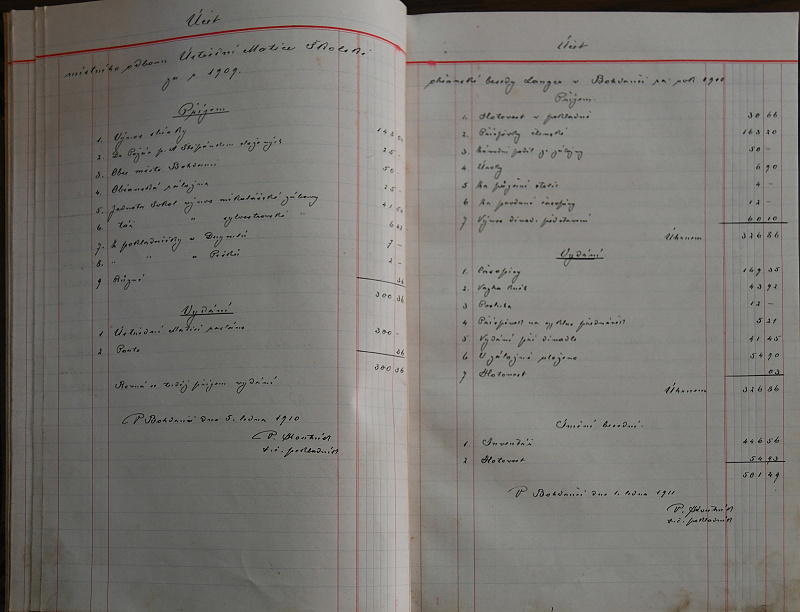 Účet
místního odboru Ústřední Matice Školské
za r. 1909.
Příjem
1. Výnos sbírky
2. Do Pojna p. A
3. Obec město Bohdaneč 50 -
4. Občanská záložna 25 -
5. Jednota Sokol výnos mikulášské zábavy
6. táž " sylvestrovské " 
7. Z pokladničky u Dngrtů 7 -
8. " " " 2 -
9 Různé 36
300 36
Vydání
1 Ústřední Matici zasláno 300 -
2 Porto 36
300 36
Rovná se tudíž příjem vydání
V Bohdanči dne 5. ledna 1910
t. č. pokladník
Účet
občanské besedy Langer v Bohdanči za rok 1910
Příjem.
1. Hotovost v pokladně 30 66
2. Příspěvky členské 163 20
3. 50 -
4. Úroky 6 90
5. 4 -
6. Za prodané časopisy 12 -
7 Výnos divad. představení 60 10
Úhrnem 326 86
Vydání
1. Časopisy 169 35
2. Vazba knih 43 92
3 12 -
4 Příspěvek na cyklus přednášek 5 21
5 Vydání při divadle 41 45
6 V záložně uloženo 54 90
7 Hotovost 03
Úhrnem 326 86
Jmění besední.
1. Inventář 446 56
2 Hotovost 54 93
501 49
V Bohdanči dne 1. ledna 1911
t. č. pokladník